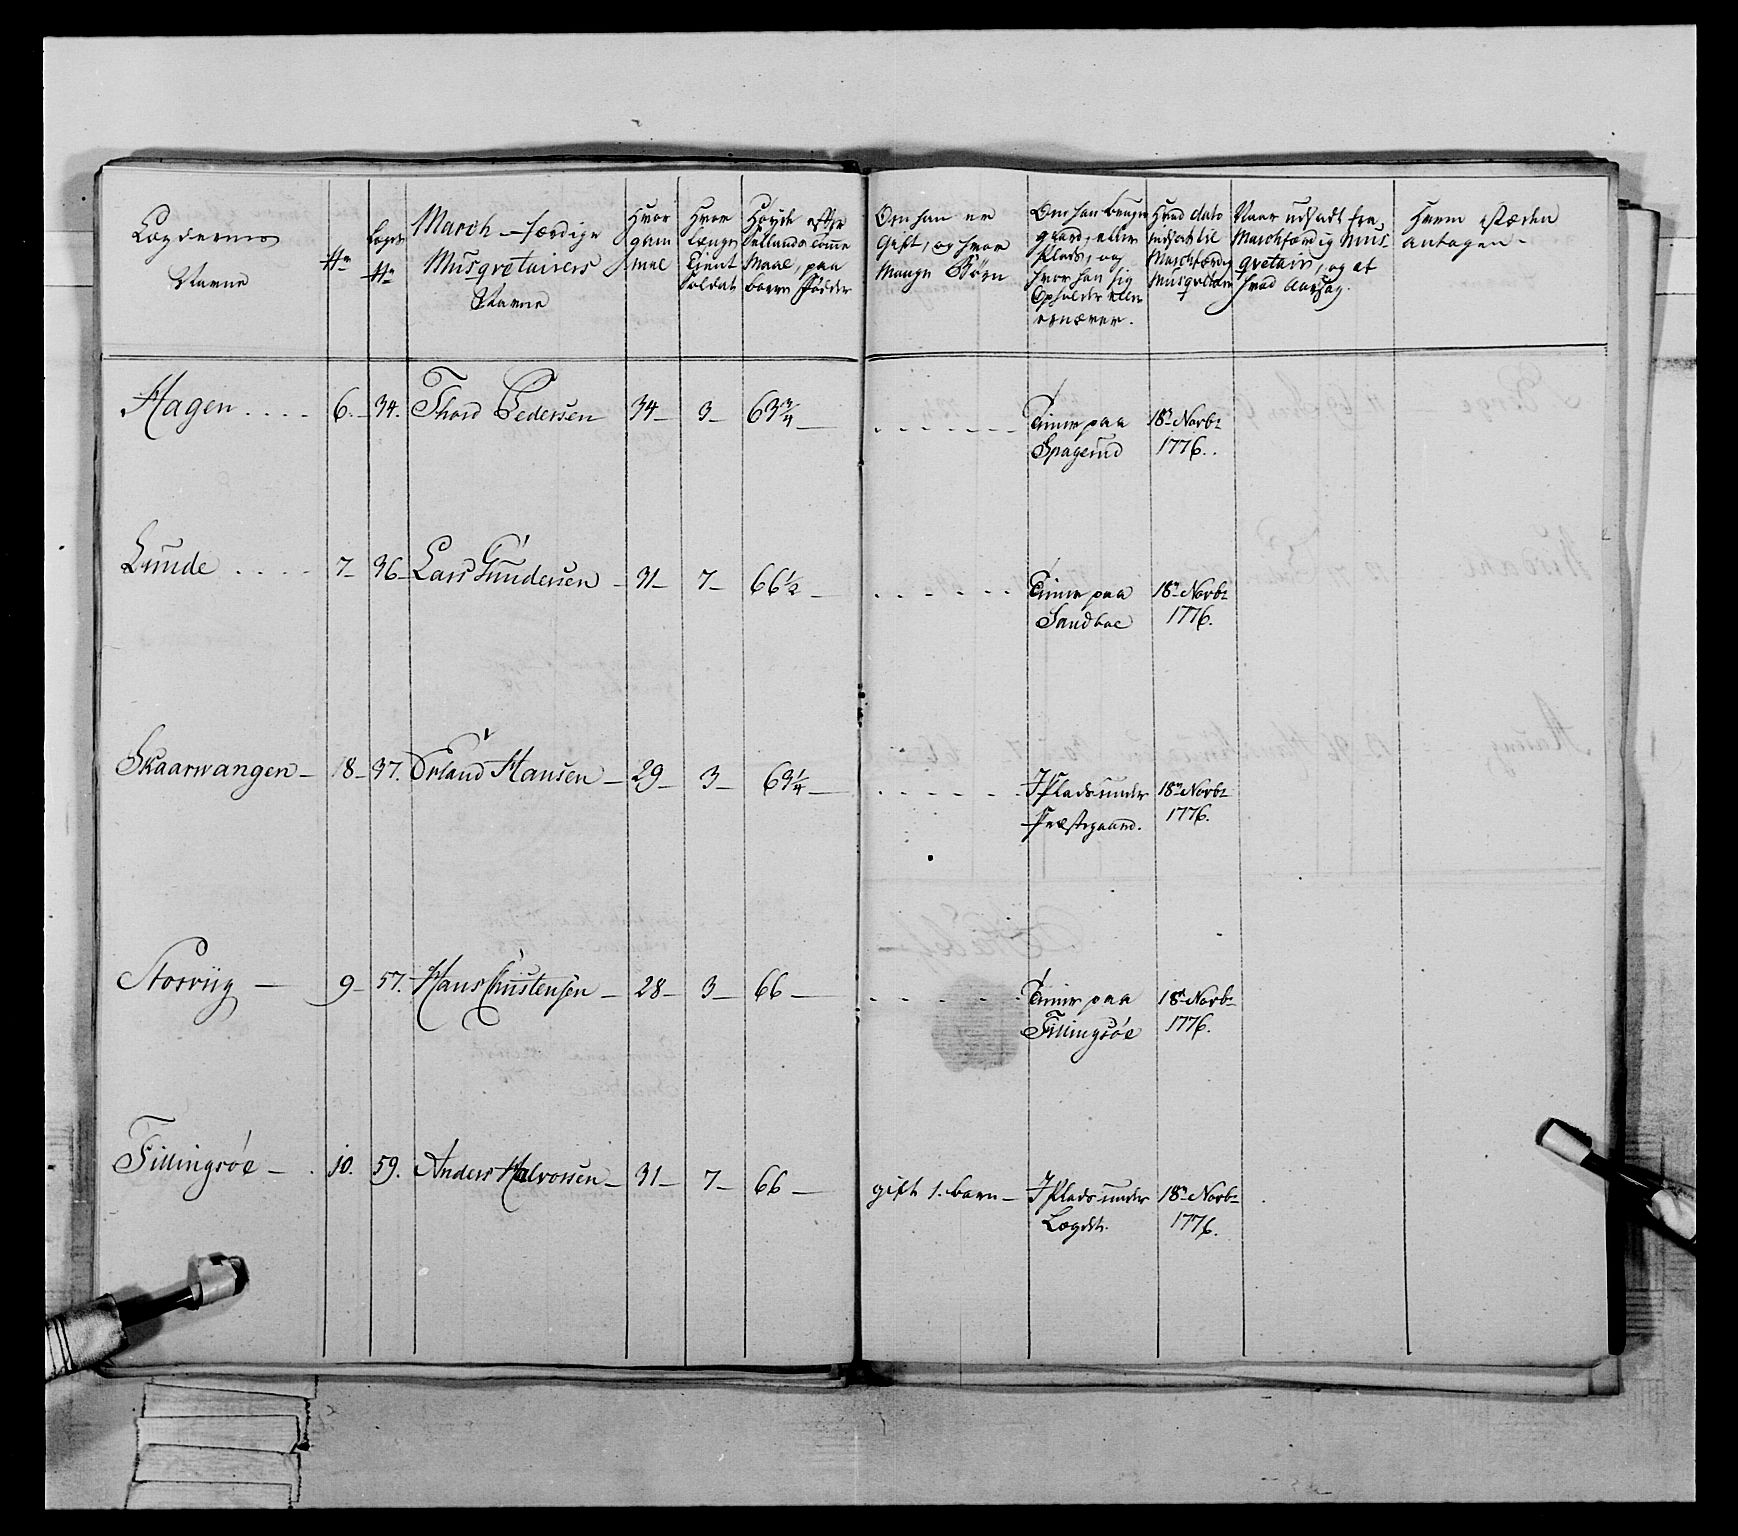 Lægdernes
Navne
No
Lægds
No
March-færdige
Musqvetairers
Navne
Hvor
gam
mel
Hvor
længe
Tient
Soldat
Høyde efter
Sællands Tomme
Maal, paa
barre Fødder
Om han er
Gift, og hvor
Mange Børn
Om han bruger
gaard, eller
Plads, og
hvor han sig
Opholder eller
ernærer.
Hvad dato
indsat til
Marchfærdig
Musqvetair
Naar udsadt fra
Marchfærdig Mus-
qvetair, og af
hvad Aarsag.
Hvem i Stæden
antagen-
Hagen .... 6. 34. Thord Pedersen 34- 3- 63 3/4 - - - - - - - Tiener paa 18de Novbr
Spagerud 1776.
Lunde .... 7- 36- Lars Gundersen - 31- 7- 66 1/2 - - - - - - - Tiener paa 18de Novbr
Sandboe 1776.
Skaarwangen - 18- 37. Erland Hansen - 29- 3- 63 1/4 - - - - - - - J Plads under 18de Novbr
Præstegaard. 1776.
Storviig - 9- 57. Hans Christensen - 28- 3- 66 - - - - - - - Tiener paa 18de Novbr
Fillingsøe 1776.
Fillingsøe - . 10. 59. Anders Halvorsen - 31- 7- 66 - gift 1. barn - J Plads under 18de Novbr
Lægdet. 1776.